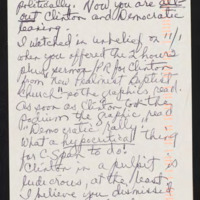 politically. Now you are all-
out Clinton and Democratic
leaning.
I watched in unbelief on 11/1
when you offered the 2 hours
plus sermon/PR for Clinton
from "New Testament Baptist
Church" the graphics read.
As soon as Clinton took the
podium the graphic read,
"Democratic Rally."
What a hypocritical thing
for C-Span to do!
Clinton in a pulpit is
ludicrous, at the least.
I believe you dismissed